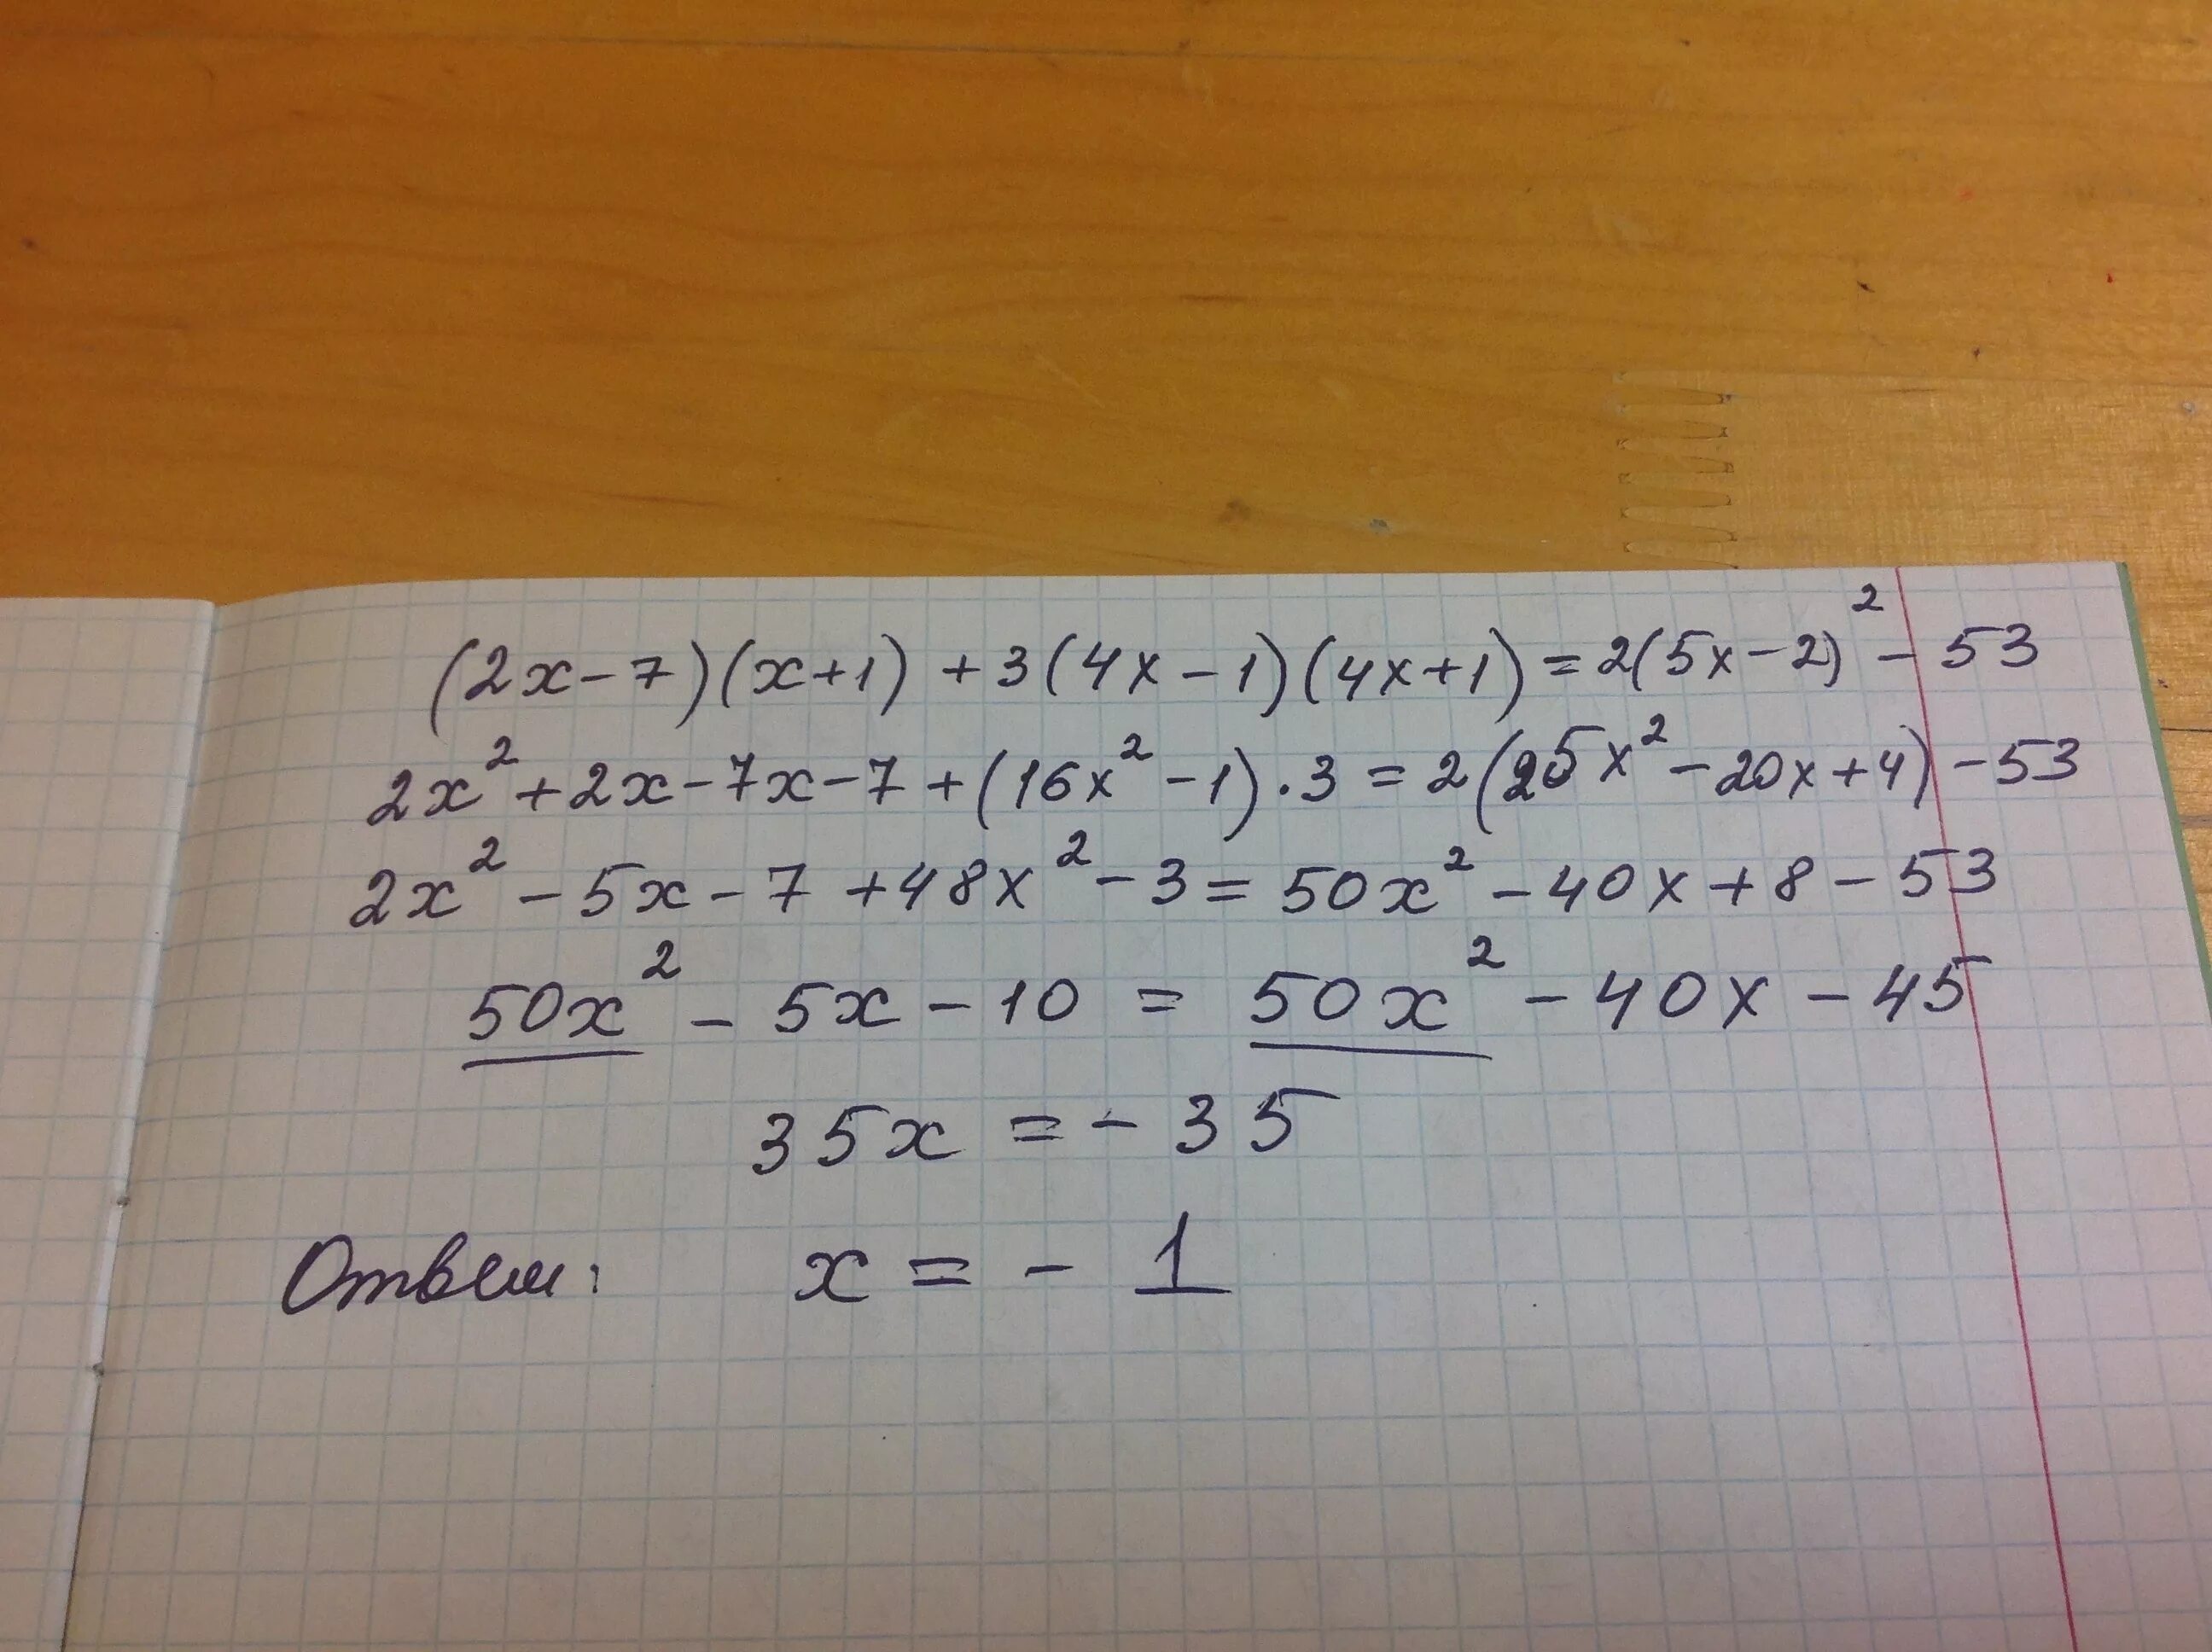 (2x-7)(x+1)+3(4x-1)(4x+1)=2(5x-2)²-53
2x²+2x-7x-7+(16x²-1)·3=2(25x²-20x+4)-53
2x²-5x-7+48x²-3=50x²-40x+8-53
50x²-5x-10=50x²-40x-45
35x=-35
Ответ: x=-1